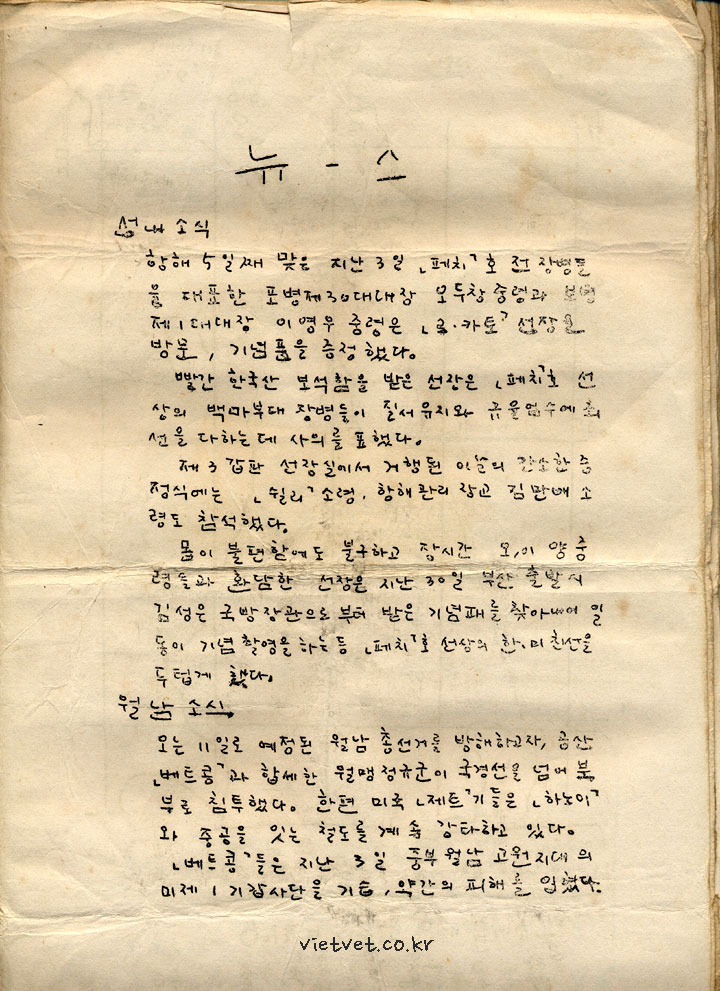 뉴 - 스
선내 소식
항해 5일째 맞은 지난 3일 「페치」호 전 장병들
을 대표한 포병제30대대장 모두창 중령과 보병
제1대대장 이영우 중령은 「로·카토」 선장을
방문, 기념품을 증정했다.
빨간 한국산 보석함을 받은 선장은 「페치」호 선
상의 백마부대 장병들이 질서유지와 규율엄수에 최
선을 다하는데 사의를 표했다.
제3갑판 선장실에서 거행된 이날의 간소한 증
정식에는 「쉴러」소령, 항해관리 장교 김만배 소
령도 참석했다.
몸이 불편함에도 불구하고 장시간 모,이 양 중
령들과 환담한 선장은 지난 30일 부산 출발시
김성은 국방장관으로부터 받은 기념패를 찾아내어 일
동이 기념촬영을 하는등 「페치」호 선상의 한·미 친선을
두텁게 했다.
월남 소식
오는 11일로 예정된 월남 총선거를 방해하고자, 공산
「베트콩」과 합세한 월맹정규군이 국경선을 넘어 북
부로 침투했다. 한편 미국 「제트」기들은 「하노이」
와 중공을 잇는 철도를 계속 강타하고 있다.
「베트콩」들은 지난 3일 중부월남 고원지대의
미제1기갑사단을 기습, 약간의 피해를 입혔다.
vietvet.co.kr